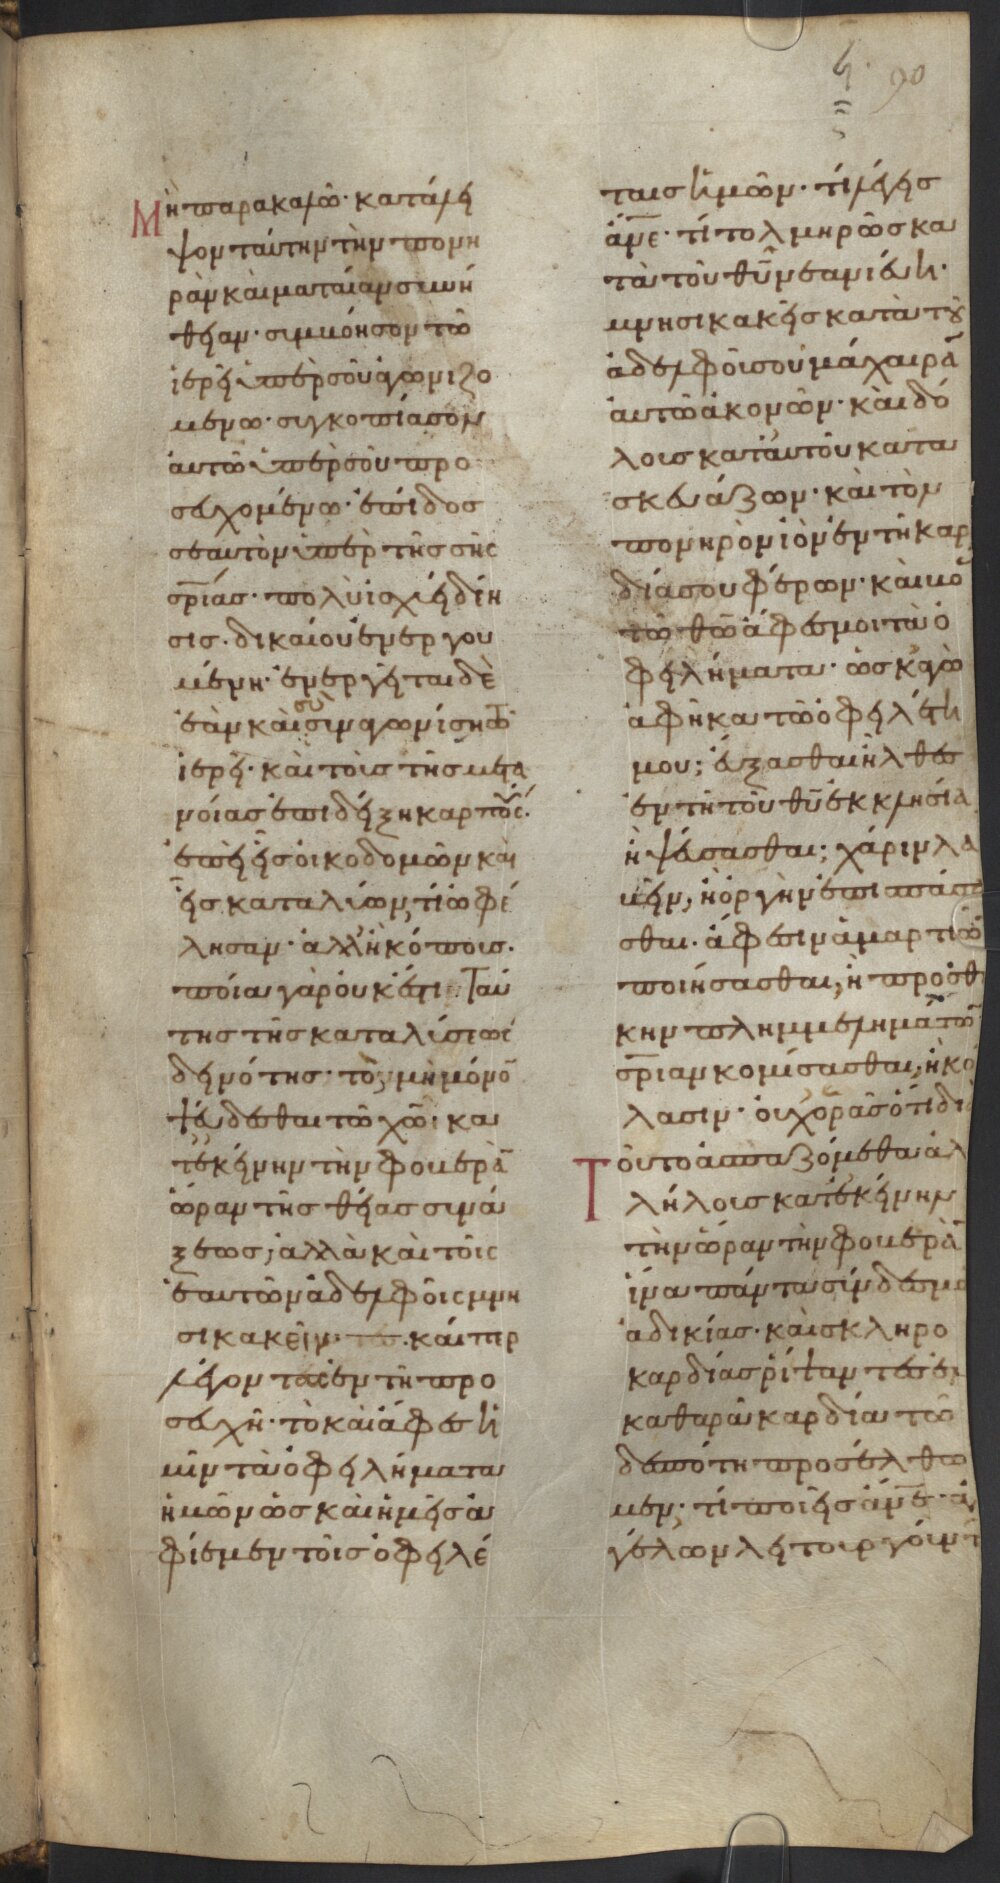 90
Μὴ παρακαλῶ· κατάλει
ψον ταύτην τὴν πονη
ρὰν καὶ ματαίαν συνή
θειαν· συμπόνησον τῶ
ἱερεῖ ὑπὲρ σοῦ ἀγωνιζο
μένω· συγκοπίασον
αὐτῶ ὑπὲρ σοῦ προ
σευχομένω· ἐπίδος
σεαυτὸν ὑπὲρ τῆς σῆς
σ̅ρίας· πολὺ ἰσχύει δέη
σις· δικαίου ἐνεργου
μένη· ἐνεργεῖται δὲ
ἐὰν καὶ σὺ συναγωνίση τῶ
ἱερεῖ· καὶ τοῖς τῆς μετα
νοίας ἐπιδείξη καρπούς·
ἐπεὶ εἷς οἰκοδομῶν καὶ
εἷς καταλύων, τί ὠφέ
λησαν· ἀλλ' ἢ κόπους·
ποία γὰρ οὐκ ἔτι ταύ
της τῆς καταλύσεως
δεινότης· τὸ μὴ μόνον
ψεύδεσθαι τῶ χῶ· κα
τ' ἐκείνην τὴν φοβερὰν
ὥραν τῆς θείας συνά
ξεως; ἀλλὰ καὶ τοῖς
ἑαυτῶν ἀδελφοῖς μνη
σικακεῖν· καίπερ
λέγοντας ἐν τῆ προ
σευχῆ· τὸ καὶ ἄφες ἡ
μῖν τὰ ὀφειλήματα
ἡμῶν ὡς καὶ ἡμεῖς ἀ
φίεμεν τοῖς ὀφειλέ
ταις ἡμῶν· τί λέγεις
ἄν̅ε· τί τολμηρῶς κα
τὰ τοῦ θ̅υ νεανιεύη·
μνησικακεῖς κατὰ τοῦ
ἀδελφοῦ σου μάχαιραν
αὐτῶ ἀκονῶν· καὶ δό
λους κατ' αὐτοῦ κατα
σκευάζων· καὶ τὸν
πονηρὸν ἰὸν ἐν τῆ καρ
δία σου φέρων· καὶ βοᾶς
τῶ θ̅ω ἄφες μοι τὰ ὀ
φειλήματα· ὡς κἀγὼ
ἀφῆκα τῶ ὀφειλέτη
μου; εὔξασθαι ἦλθες
ἐν τῆ τοῦ θ̅υ ἐκκλησία
ἢ ψεύσασθαι; χάριν λα
βεῖν, ἢ ὀργὴν ἐπισπάσα
σθαι· ἄφεσιν ἁμαρτιῶν
ποιήσασθαι, ἢ προσθή
κην πλημμελημάτων
σ̅ριαν κομίσασθαι, ἢ κό
λασιν· οὐχ ὁρᾶς ὅτι διὰ
τοῦτο ἀσπαζόμεθα ἀλ
λήλους κατ' ἐκείνην
τὴν ὥραν τὴν φοβερὰν
ἵνα πάντα σύνδεσμον
ἀδικίας· καὶ σκληρο
καρδίας ῥίψαντες ἐν
καθαρᾶ καρδία τῶ
δεσπότη προσέλθω
μεν· τί ποιεῖς ἄν̅ε· ἀγ
γέλων λειτουργούντ